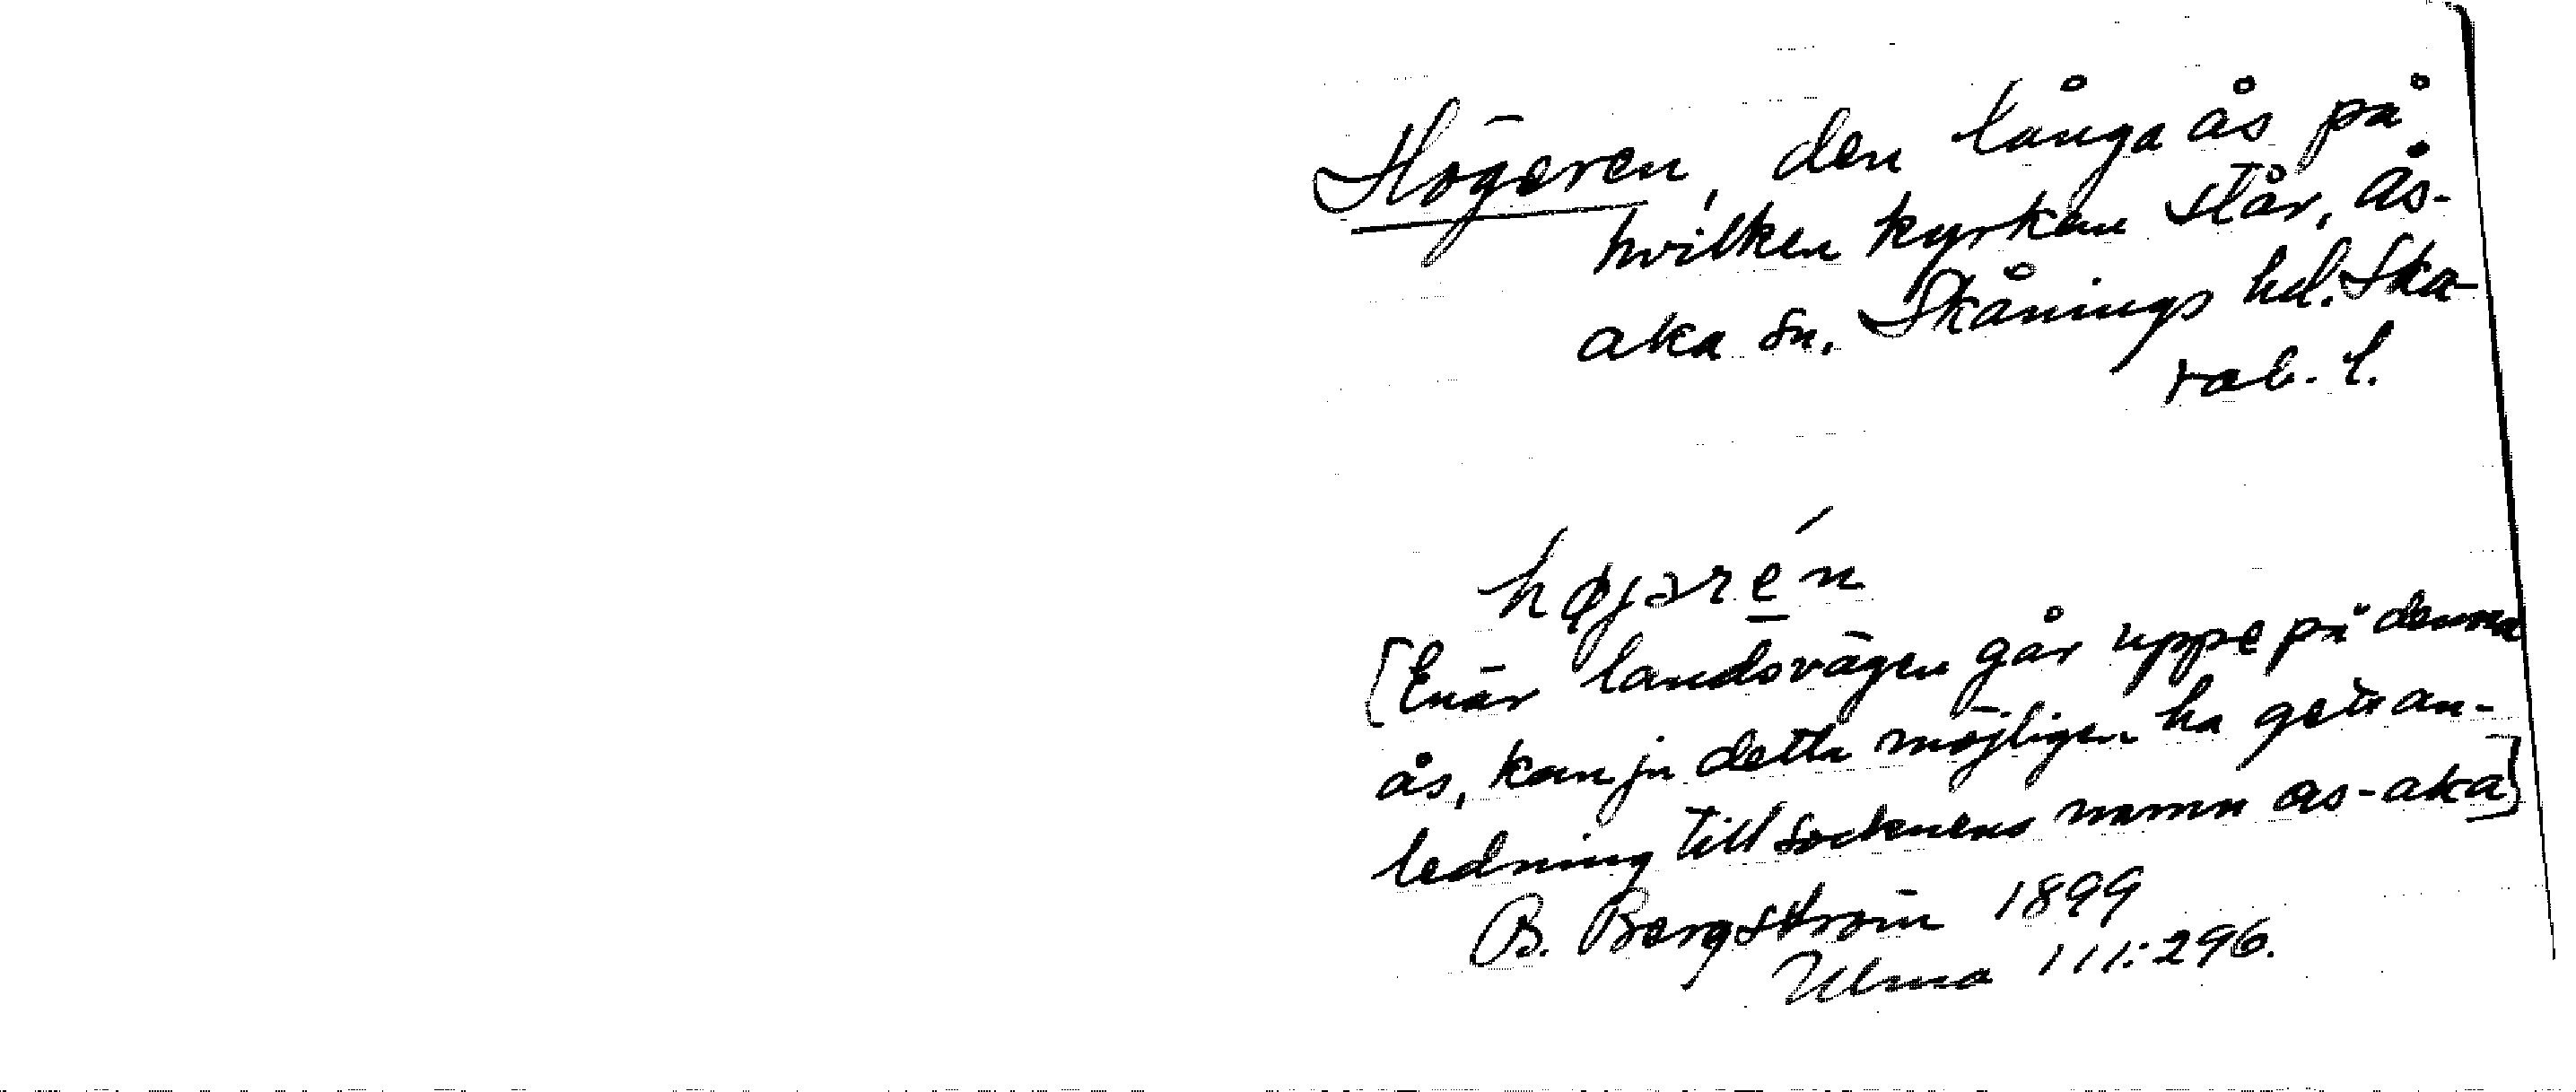 Högeren, den långa ås på
hvilken kyrkan står, Ås-
aka sn. Skånings hd. Ska-
rab. l.
højərén
[Enär landsvägen går uppe på denna
ås, kan ju detta möjligen ha gett an-
ledning till socknens namn as-aka]
B. Bergström 1899
Ulma 111:296.